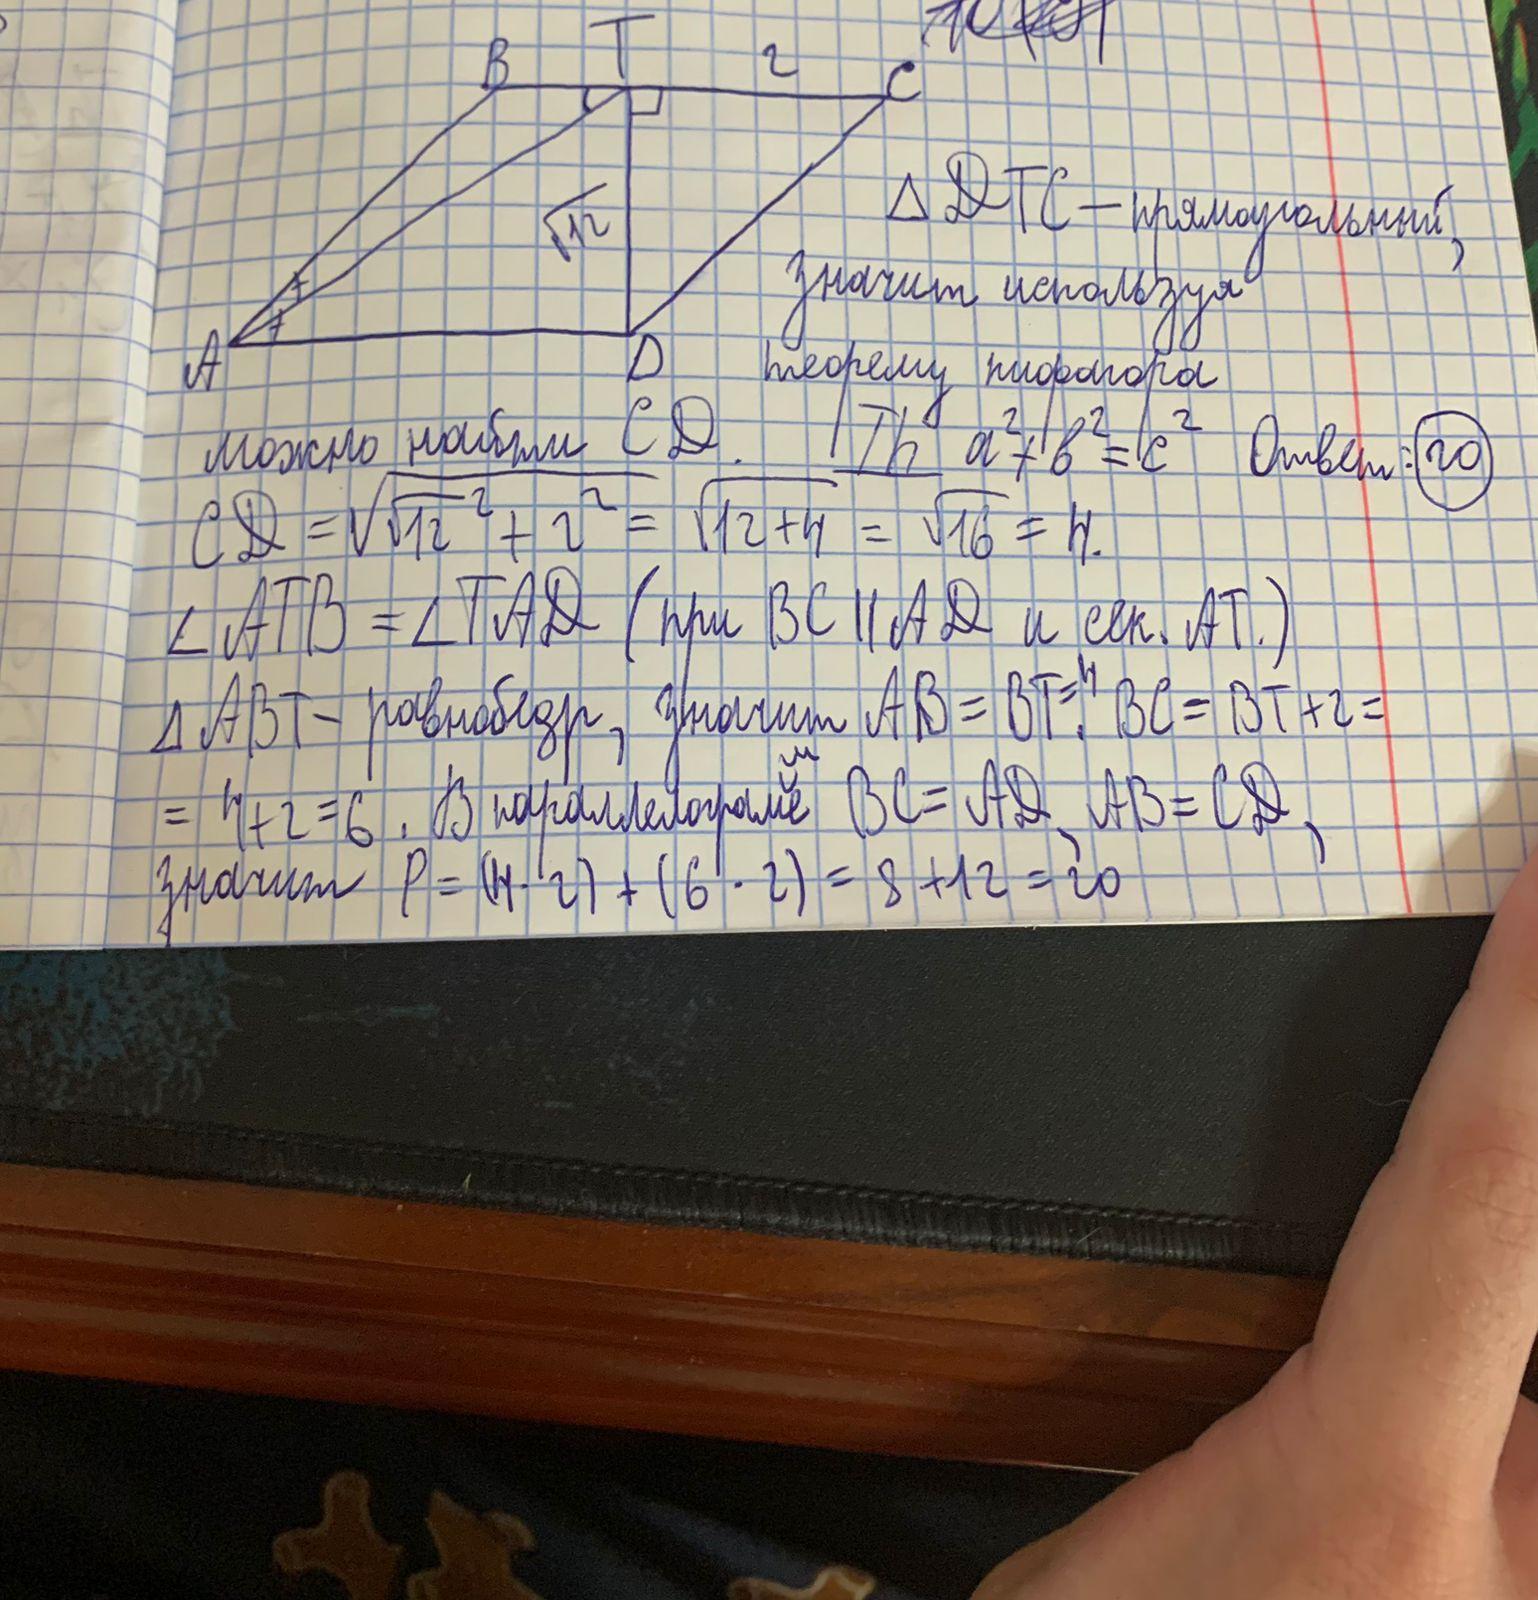 B T 2 C 10
√12
A D
△DTC – прямоугольный,
значит используя
теорему пифагора
можно найти CD. Th a²+b²=c² Ответ: 20
CD = √(√12² + 2²) = √(12+4) = √16 = 4.
∠ATB = ∠TAD (при BC || AD и сек. AT.)
△ABT – равнобедр, значит AB = BT = 4. BC = BT + 2 =
= 4+2=6. В параллелограмме BC = AD, AB = CD,
значит P = (4·2) + (6·2) = 8+12 = 20